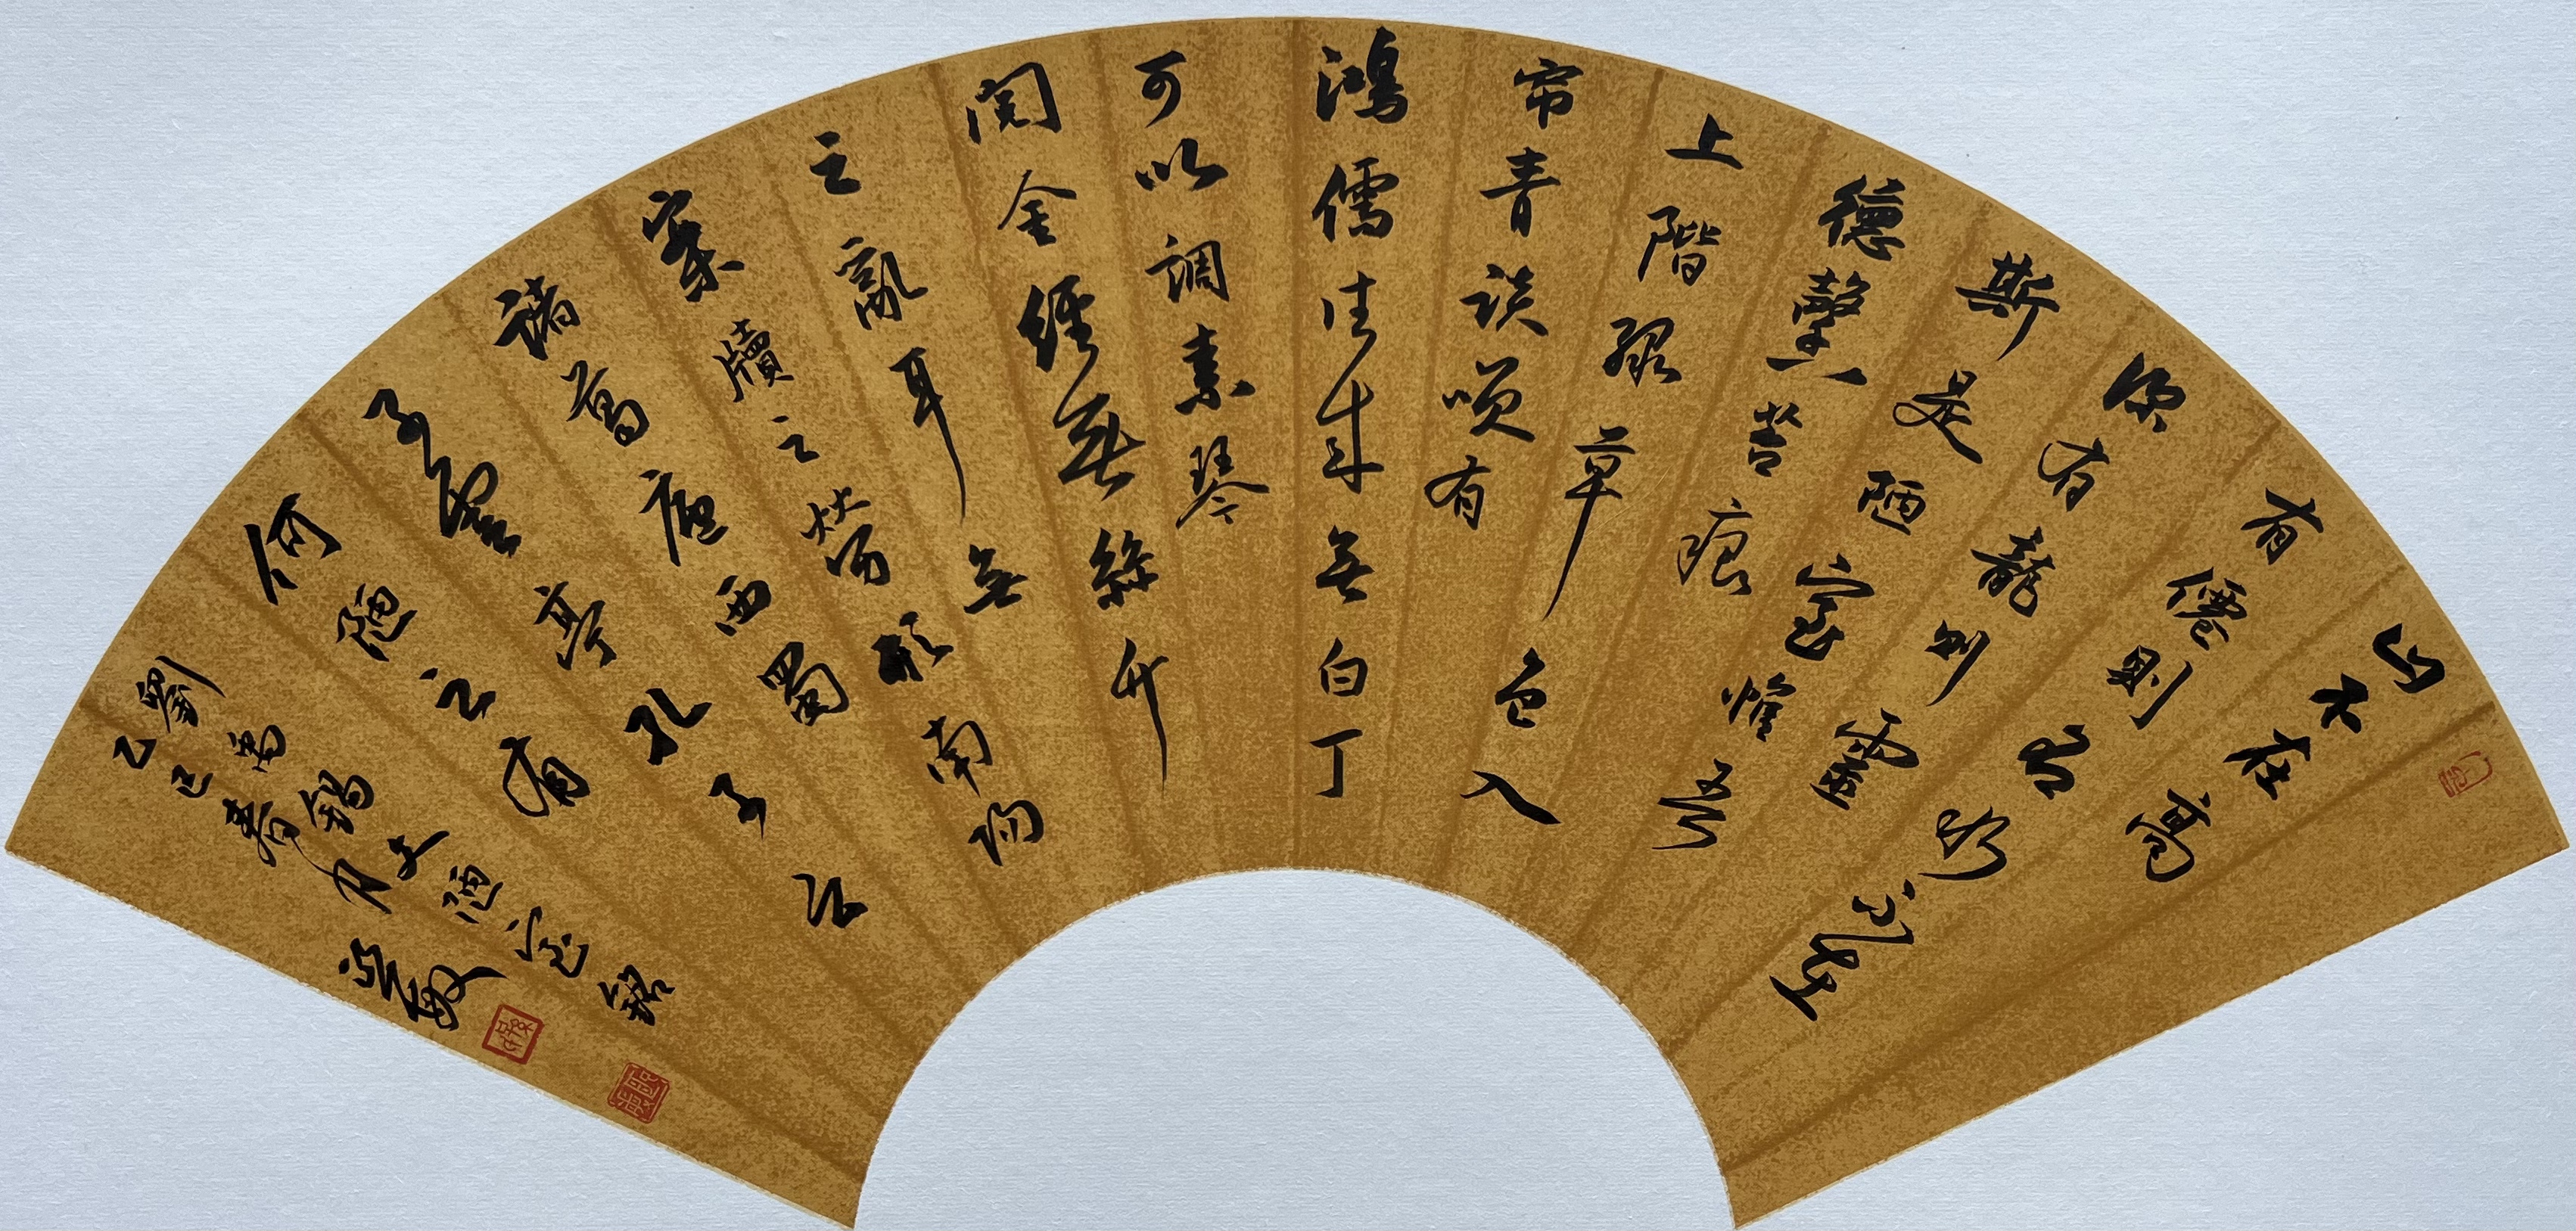 山不在高
有僊則名水不在
深有龍則靈
斯是陋室惟吾
德馨苔痕
上階緑草色入
帘青談咲有
鴻儒往来無白丁
可以調素琴
閱金經無絲竹
之亂耳無
案牘之勞形南陽
諸葛廬西蜀
子雲亭孔子云
何陋之有
劉禹錫文陋室銘
乙巳春月